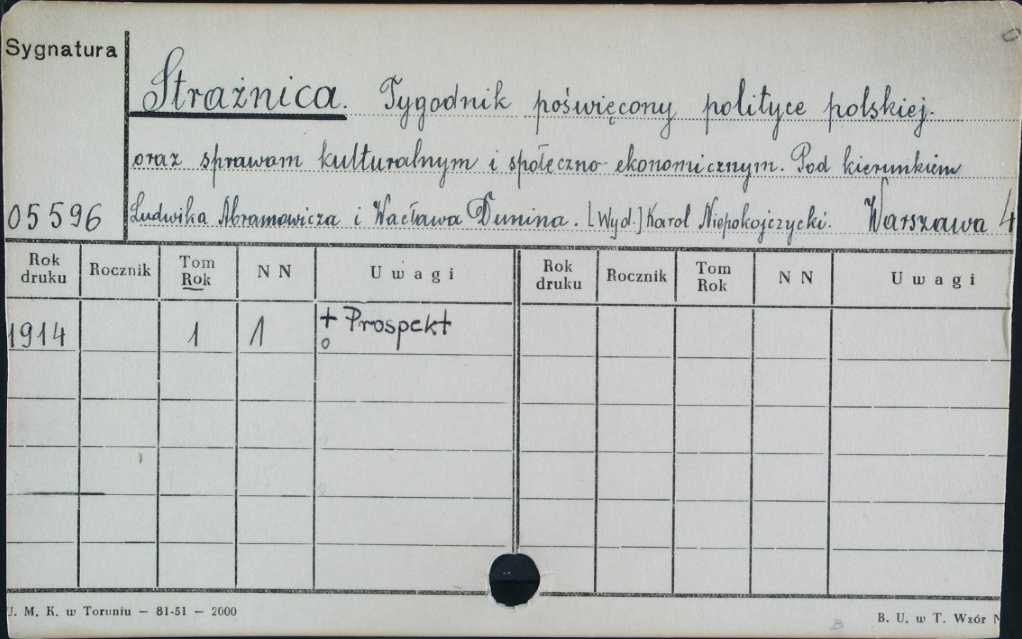 Sygnatura
Strażnica. Tygodnik poświęcony polityce polskiej.
oraz sprawom kulturalnym i społeczno-ekonomicznym. Pod kierunkiem
05596 Ludwika Abramowicza i Wacława Dunina. [Wyd.] Karol Niepokojczycki. Warszawa 4
Rok druku Rocznik Tom Rok N N Uwagi Rok druku Rocznik Tom Rok N N Uwagi
1914 1 1 + Prospekt
o
U. M. K. w Toruniu — 81-51 — 2000
B. U. w T. Wzór N
B